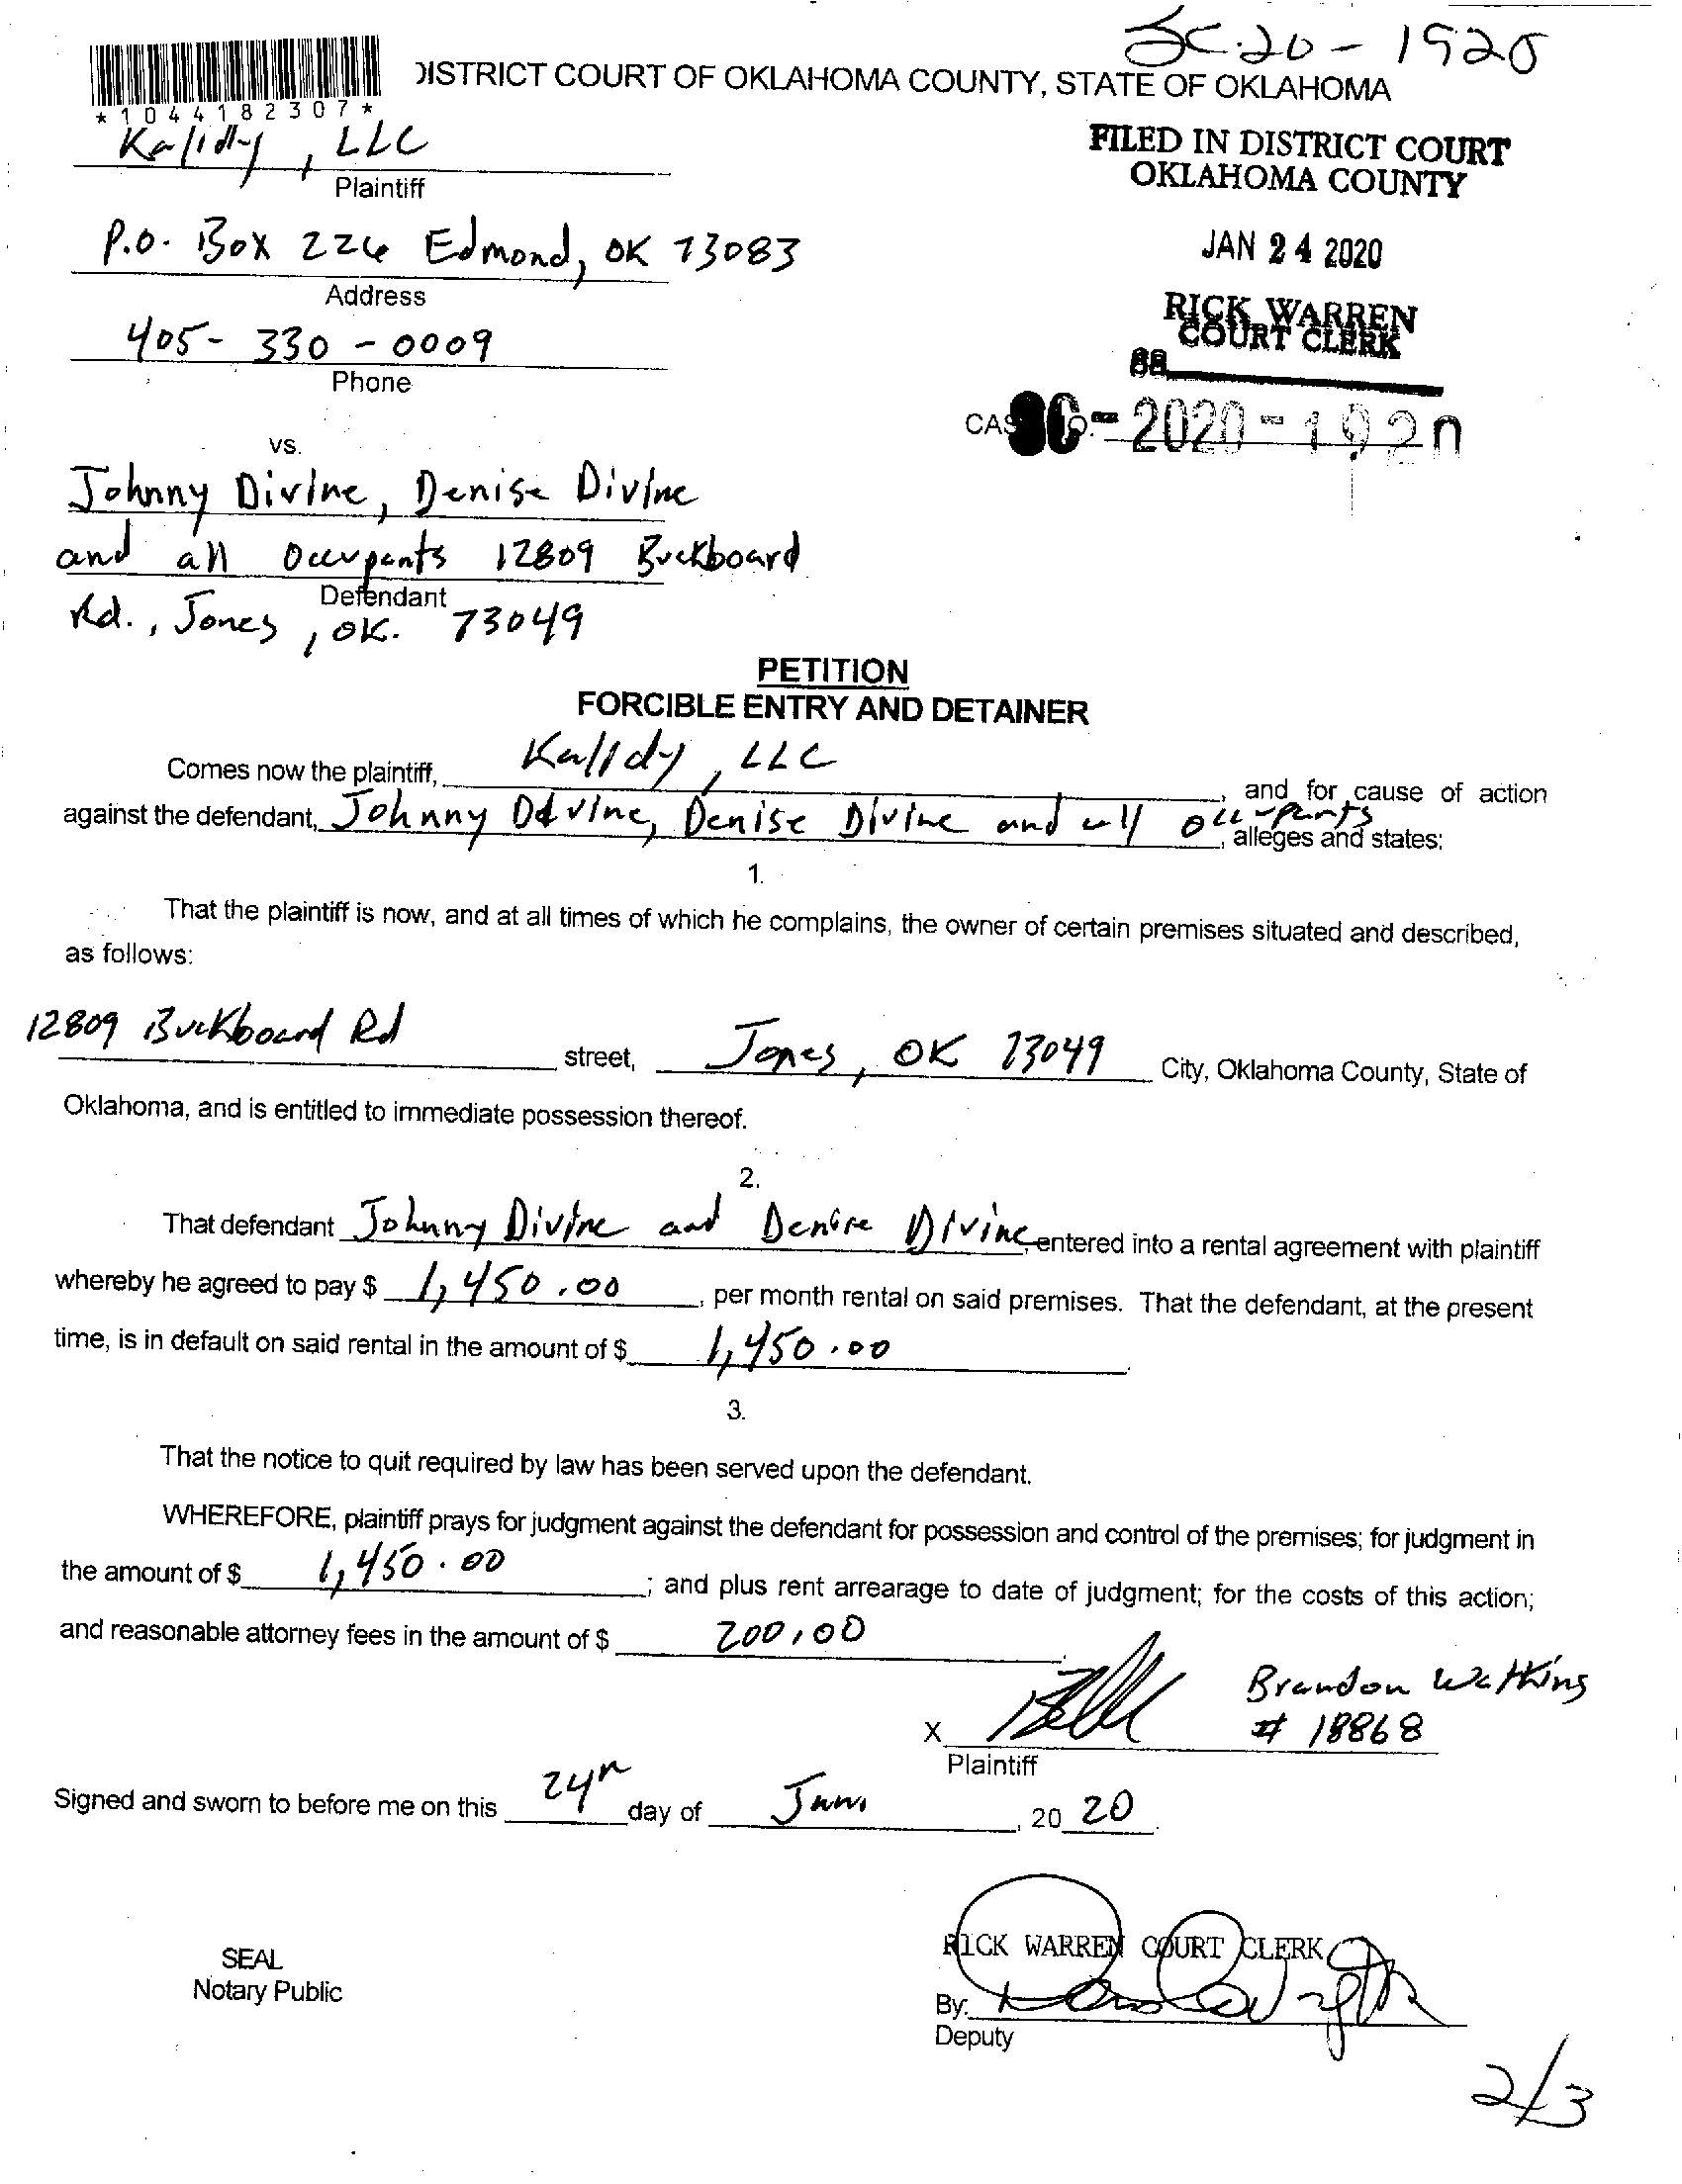 SC-20-1920
DISTRICT COURT OF OKLAHOMA COUNTY, STATE OF OKLAHOMA
*1044182307*
Kalidy, LLC
Plaintiff
FILED IN DISTRICT COURT
OKLAHOMA COUNTY
P.O. Box 226 Edmond, OK 73083
Address
JAN 24 2020
405-330-0009
Phone
RICK WARREN
COURT CLERK
88
SC-2020-1920
vs.
Johnny Divine, Denise Divine
and all Occupants 12809 Buckboard
Defendant
Rd., Jones, OK. 73049
PETITION
FORCIBLE ENTRY AND DETAINER
Comes now the plaintiff, Kalidy, LLC, and for cause of action
against the defendant, Johnny Divine, Denise Divine and all occupants, alleges and states:
1.
That the plaintiff is now, and at all times of which he complains, the owner of certain premises situated and described,
as follows:
12809 Buckboard Rd street, Jones, OK 73049 City, Oklahoma County, State of
Oklahoma, and is entitled to immediate possession thereof.
2.
That defendant Johnny Divine and Denise Divine, entered into a rental agreement with plaintiff
whereby he agreed to pay $ 1,450.00, per month rental on said premises. That the defendant, at the present
time, is in default on said rental in the amount of $ 1,450.00.
3.
That the notice to quit required by law has been served upon the defendant.
WHEREFORE, plaintiff prays for judgment against the defendant for possession and control of the premises; for judgment in
the amount of $ 1,450.00; and plus rent arrearage to date of judgment; for the costs of this action;
and reasonable attorney fees in the amount of $ 200.00.
Brandon Watkins
X # 18868
Plaintiff
Signed and sworn to before me on this 24th day of Jan, 20 20.
RICK WARREN COURT CLERK
SEAL
Notary Public
By:
Deputy
2/3